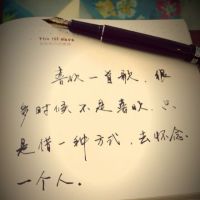 The 151 days
喜欢一首歌,很
多时候不是喜欢,只
是借一种方式,去怀念
一个人。